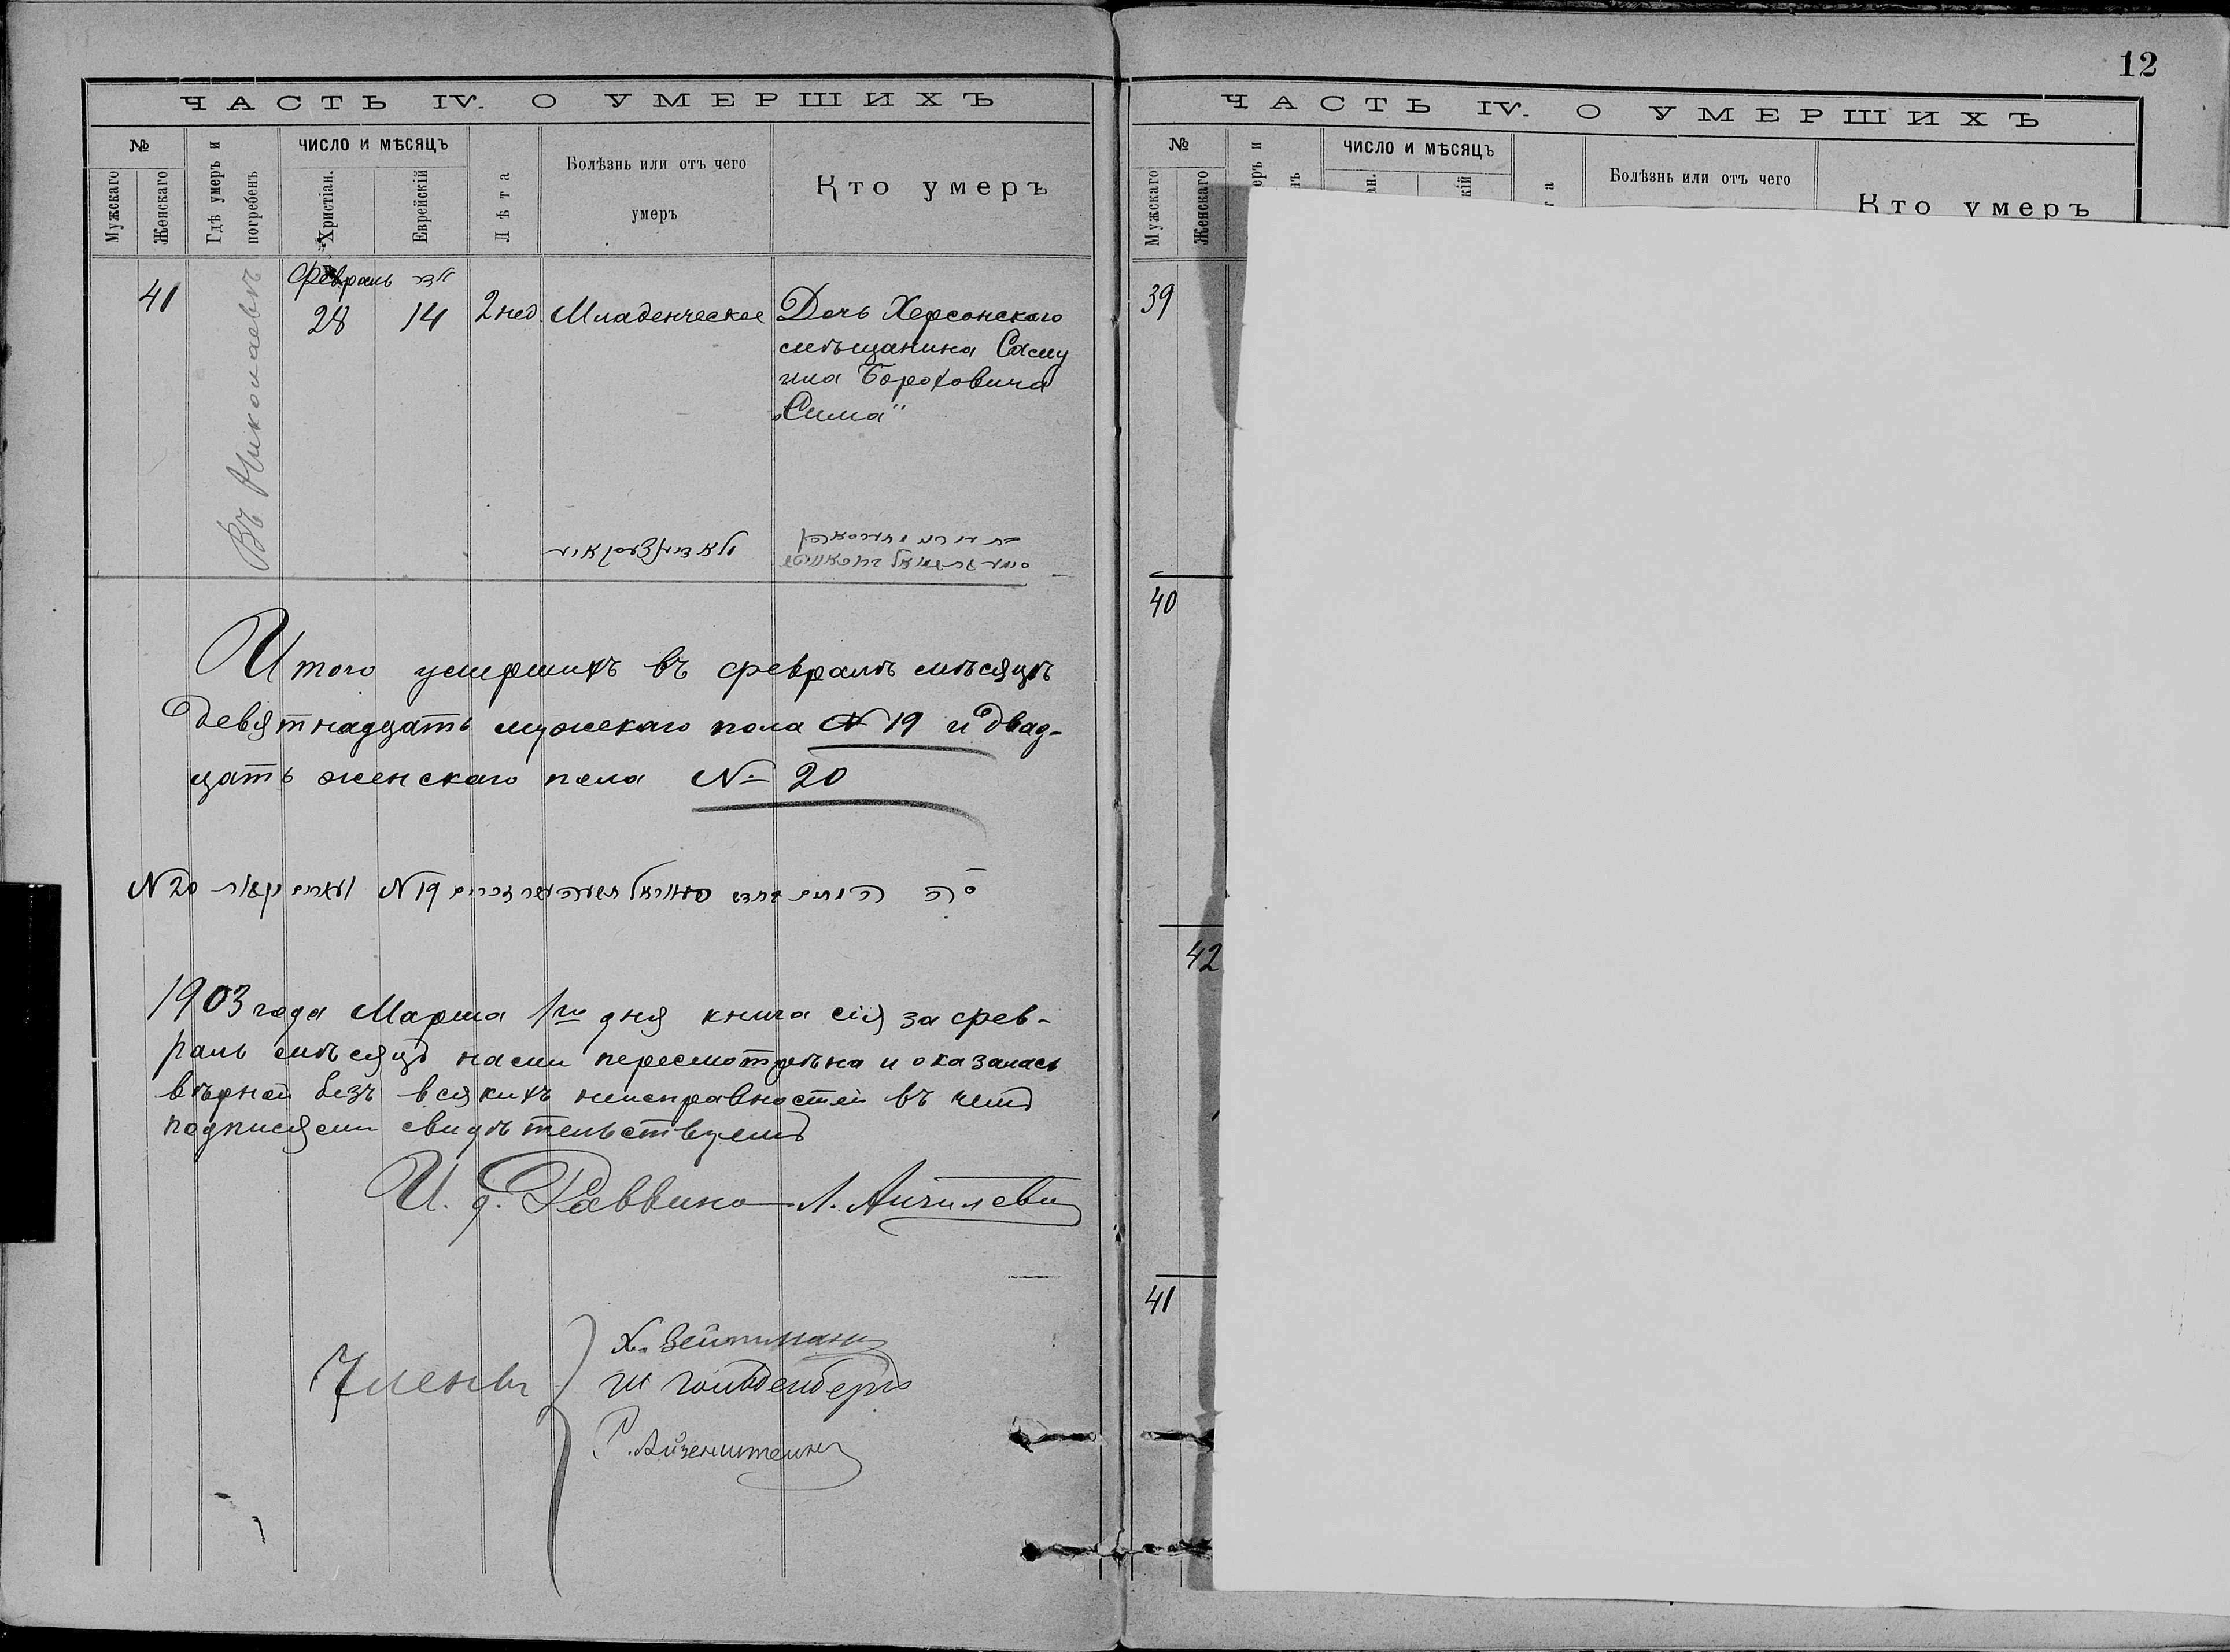 ЧАСТЬ IV. О УМЕРШИХЪ
№
Мужскаго
Женскаго
Гдѣ умеръ и погребенъ
ЧИСЛО И МѢСЯЦЪ
Христіан.
Еврейскій
Лѣта
Болѣзнь или отъ чего
умеръ
Кто умеръ
41
Въ Николаевѣ
Февраль
28
14
2 нед.
Младенческое
Дочь Херсонскаго
мѣщанина Саму
ила Бороховича
„Сима"
Итого умершихъ въ февралѣ мѣсяцѣ
девятнадцать мужскаго пола № 19 и двад-
цать женскаго пола № 20
N 20 N 19
1903 года Марта 1го дня книга сія за фев-
раль мѣсяцъ нами пересмотрѣна и оказалась
вѣрной безъ всякихъ неисправностей въ чемъ
подписями свидѣтельствуемъ
И. д. Раввина Л.
Члены
Х. Зейтманъ
Ш Гольденбергъ
Айзенштейнъ
12
ЧАСТЬ IV. О УМЕРШИХЪ
№
Мужскаго
Женскаго
ЧИСЛО И МѢСЯЦЪ
Болѣзнь или отъ чего
Кто умеръ
39
40
42
41